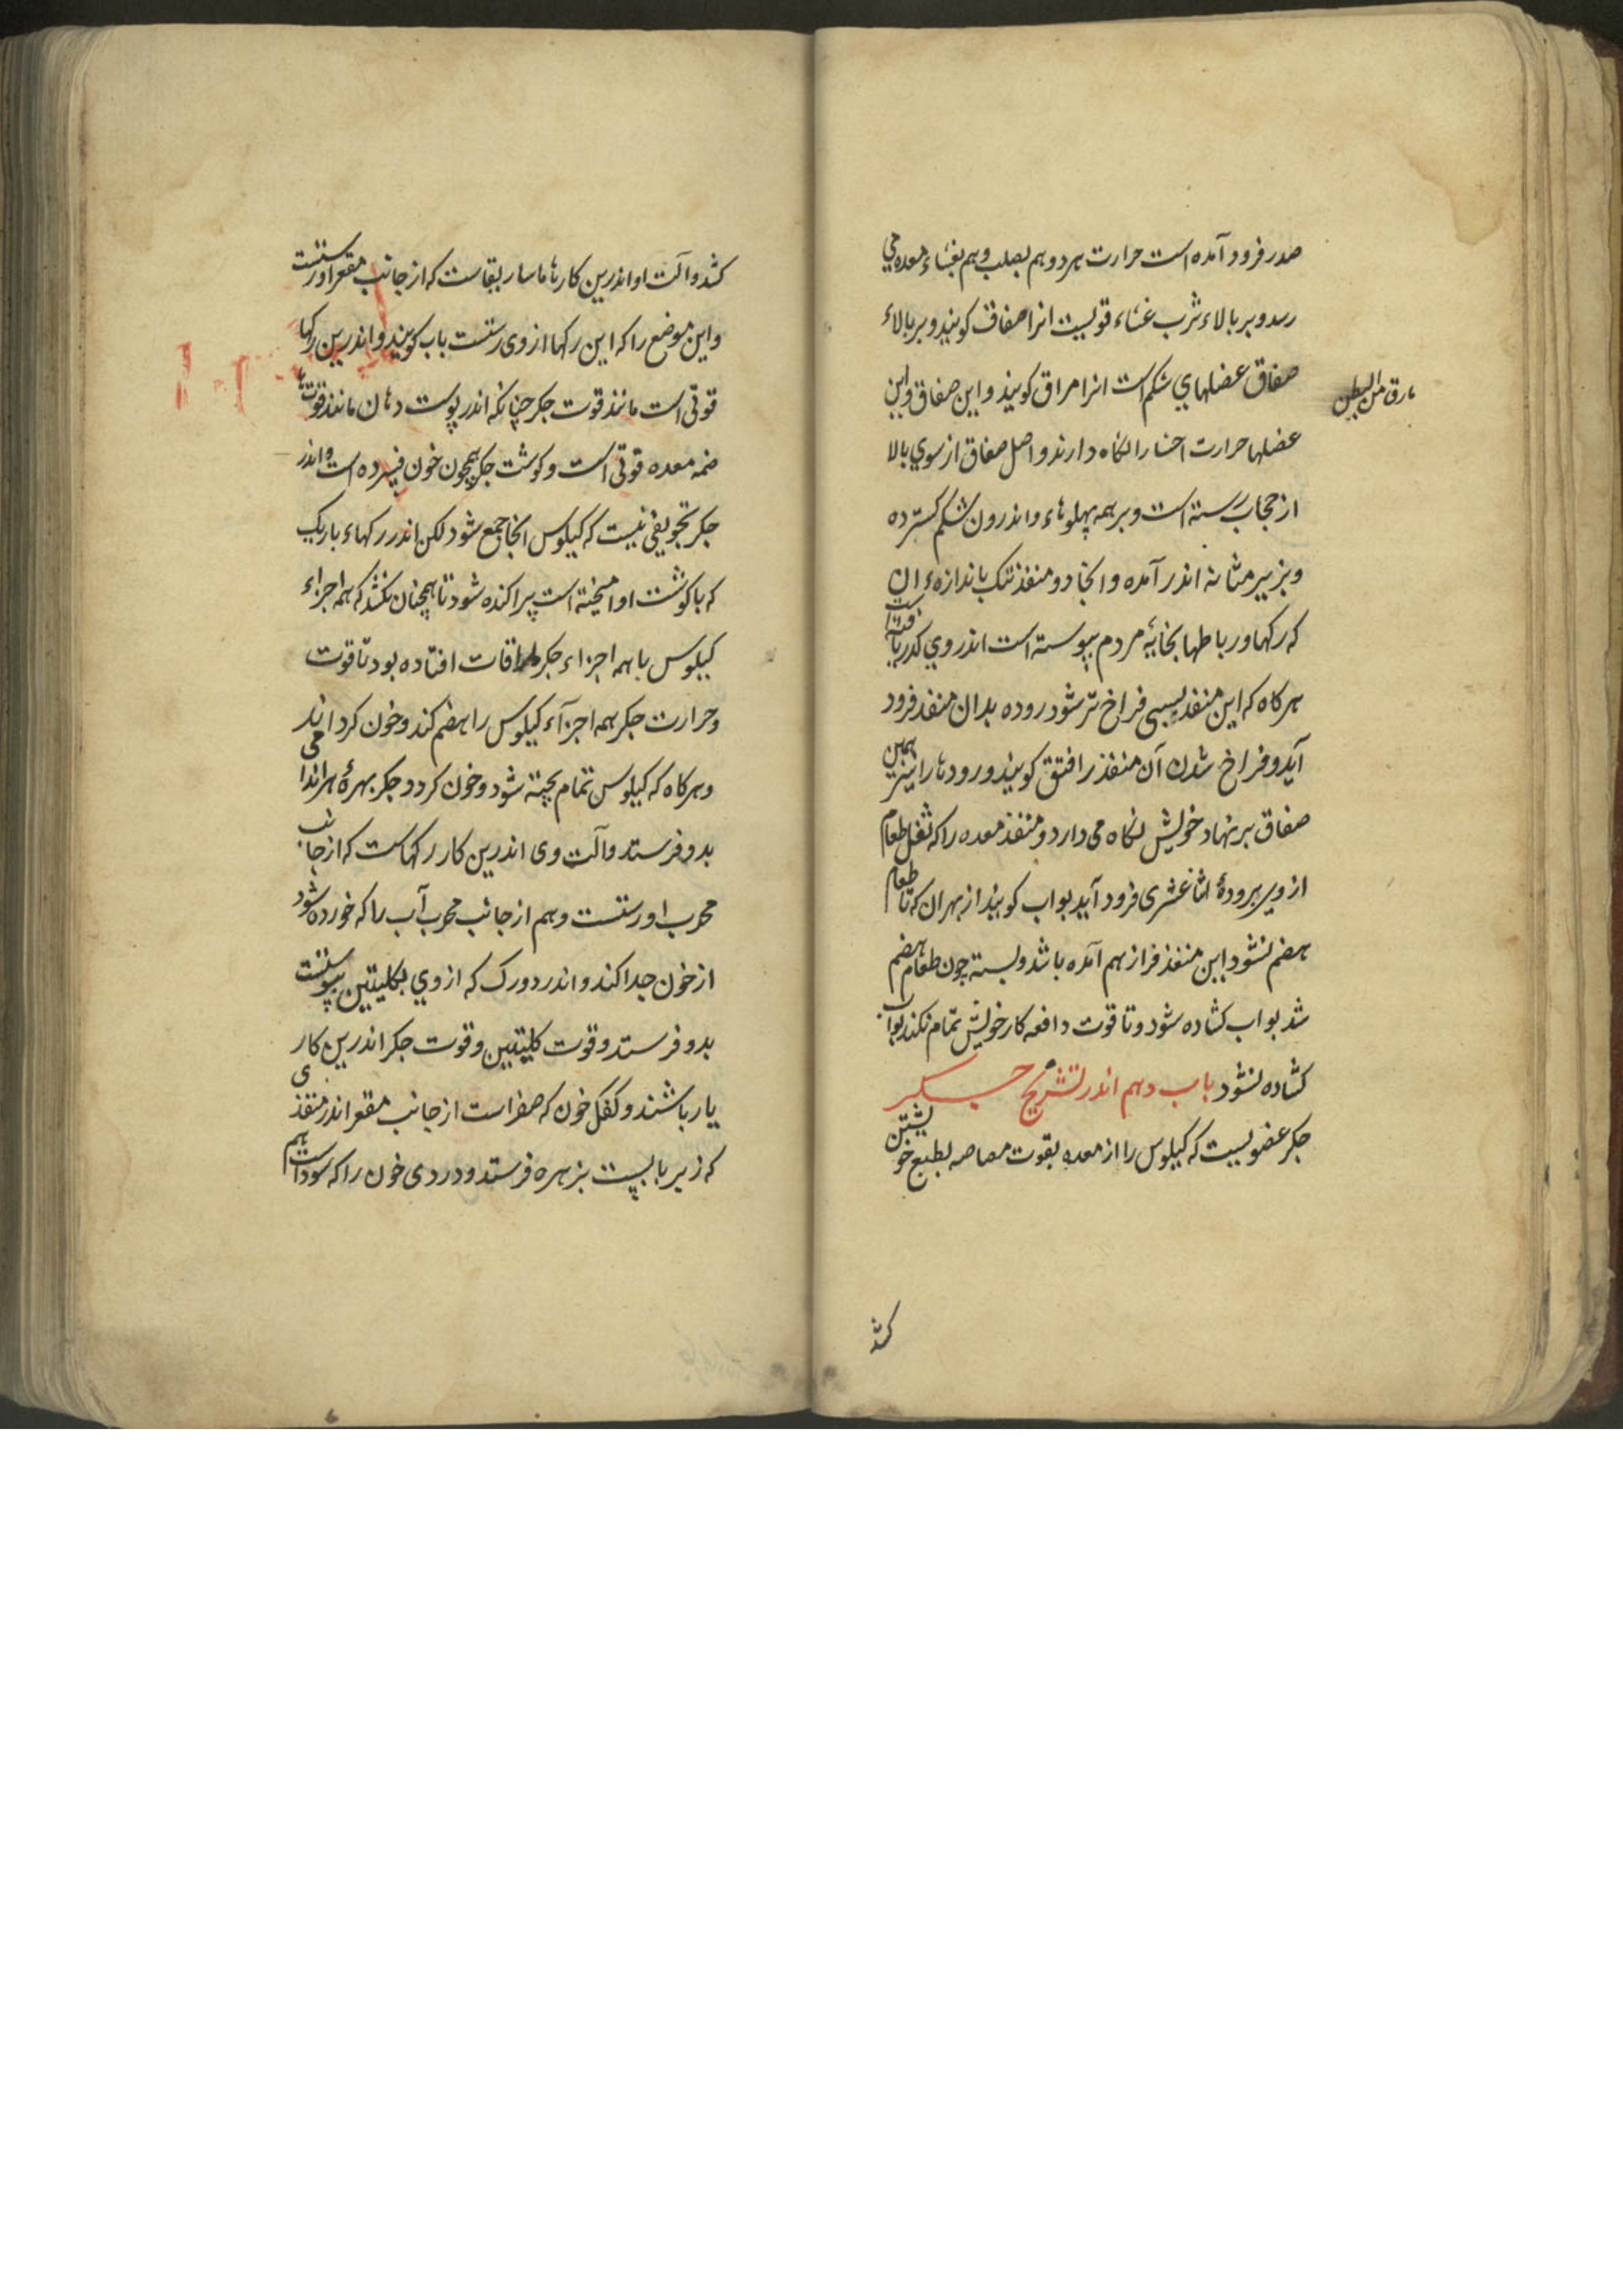 صدر فرود آمده است حرارت هر دو هم بصلب و هم بغشاء معده می
رسد و بر بالاء ثرب غشاء قویست انرا صفاق کویند و بر بالاء
صفاق عضلهای شکم است انرا مراق کویند و این صفاق و این
مارق من البطن
عضلها حرارت احشا را نکاه دارند و اصل صفاق از سوی بالا
از حجاب رسته است و بر همه پهلوهاء و اندرون شکم کسترده
و بزیر مثانه اندر آمده و انجا دو منفذ تنک باندازه ان
که رکها و رباطها بخایهٔ مردم پیوسته است اندر وی کذر یافته است
هر کاه که این منفذ بسببی فراخ تر شود روده بدان منفذ فرود
آید و فراخ شدن آن منفذ را فتق کویند و رودها را نیز همین
صفاق بر نهاد خویش نکاه می دارد و منفذ معده را که ثفل طعام
از وی برودهٔ اثناعشری فرود آید بواب کویند از بهر ان که تا طعام
هضم نشود این منفذ فراز هم آمده باشد و بسته چون طعام هضم
شد بواب کشاده شود و تا قوت دافعه کار خویش تمام نکند بواب
کشاده نشود باب دهم اندر تشریح جکر
جکر عضویست که کیلوس را از معده بقوت مصاصه بطبع خویشتن
کشد
کشد و آلت او اندرین کارها ماساریقاست که از جانب مقعر او رستست
و این موضع را که این رکها از وی رستست باب کویند و اندرین رکها
قوتی است مانند قوت جکر چنانکه اندر پوست دهان مانند قوت ها
ضمه معده قوتی است و کوشت جکر همچون خون فسرده است و اندر
جکر تجویفی نیست که کیلوس انجا جمع شود لکن اندر رکهاء باریک
که با کوشت او امیخته است پراکنده شود تا همچنان نکشد که همه اجزاء
کیلوس با همه اجزاء جکر ملاقات افتاده بود تا قوت
و حرارت جکر همه اجزآء کیلوس را هضم کند و خون کرداند
و هر کاه که کیلوس تمام پخته شود و خون کردد جکر بهرهٔ هر اندامی
بدو فرستد و آلت وی اندرین کار رکهاست که از جانب
محدب او رستست و هم از جانب محدب آب را که خورده شود
از خون جدا کند و اندر دو رک که از وی بکلیتین پیوستست
بدو فرستد و قوت کلیتین و قوت جکر اندرین کار
یار باشند و کفک خون که صفراست از جانب مقعر اندر منفذی
که زیر بابست بزهره فرستد و دردی خون را که سوداست هم